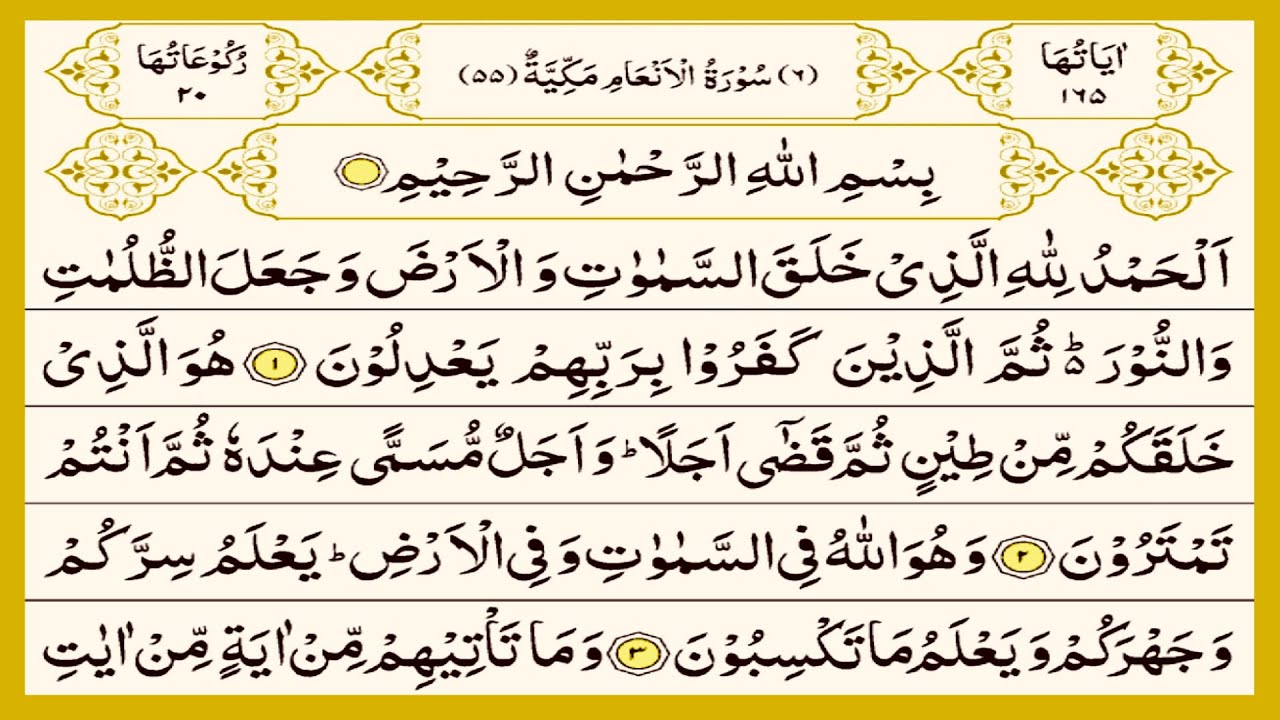 اٰيَاتُهَا
١٦٥
(٦) سُوْرَةُ الْاَنْعَامِ مَكِّيَّةٌ (٥٥)
رُكُوْعَاتُهَا
٢٠
بِسْمِ اللّٰهِ الرَّحْمٰنِ الرَّحِيْمِ
اَلْحَمْدُ لِلّٰهِ الَّذِىْ خَلَقَ السَّمٰوٰتِ وَالْاَرْضَ وَجَعَلَ الظُّلُمٰتِ
وَالنُّوْرَ ؕ ثُمَّ الَّذِيْنَ كَفَرُوْا بِرَبِّهِمْ يَعْدِلُوْنَ ١ هُوَ الَّذِىْ
خَلَقَكُمْ مِّنْ طِيْنٍ ثُمَّ قَضٰٓى اَجَلًا ؕ وَاَجَلٌ مُّسَمًّى عِنْدَهٗ ثُمَّ اَنْتُمْ
تَمْتَرُوْنَ ٢ وَهُوَ اللّٰهُ فِى السَّمٰوٰتِ وَفِى الْاَرْضِ ؕ يَعْلَمُ سِرَّكُمْ
وَجَهْرَكُمْ وَيَعْلَمُ مَا تَكْسِبُوْنَ ٣ وَمَا تَاْتِيْهِمْ مِّنْ اٰيَةٍ مِّنْ اٰيٰتِ